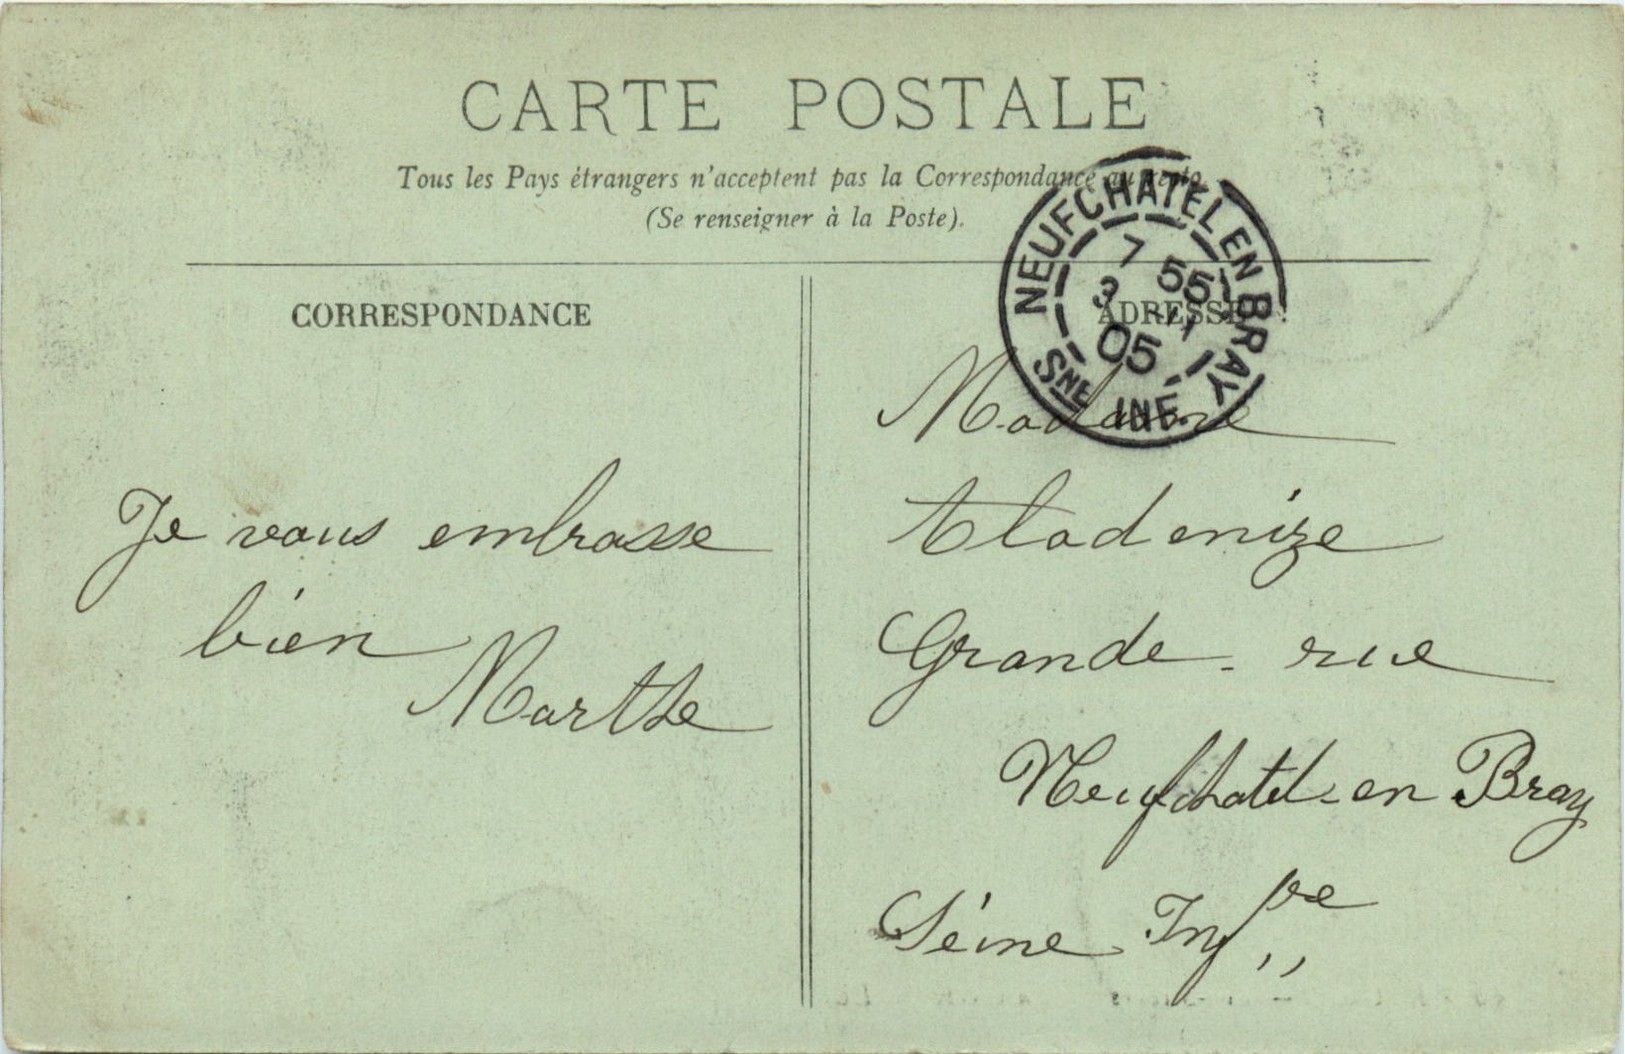 CARTE POSTALE
Tous les Pays étrangers n'acceptent pas la Correspondance au recto
(Se renseigner à la Poste).
CORRESPONDANCE
ADRESSE
NEUFCHATEL EN BRAY
7 55
3
05
SNE INFE
Je vous embrasse
bien
Marthe
Madame
Grande-rue
Neufchatel-en Bray
Seine Infre